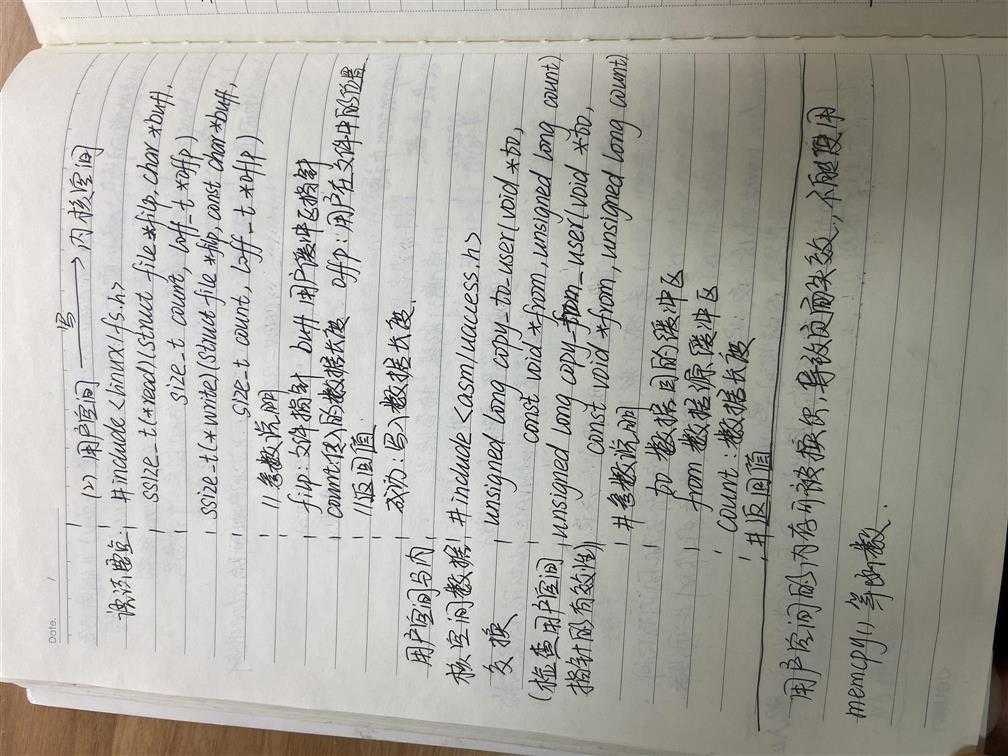 Date.
(2) 用户空间 —写→ 内核空间
读函数: #include <linux/fs.h>
ssize_t (*read)(struct file *filp, char *buff,
size_t count, loff_t *offp)
ssize_t (*write)(struct file *filp, const char *buff,
size_t count, loff_t *offp)
//参数说明
filp: 文件指针 buff 用户缓冲区指针
count: 的数据长度 offp: 用户在文件中的位置
//返回值
成功: 写入数据长度
用户空间与内
核空间数据 #include <asm/uaccess.h>
交换 unsigned long copy_to_user(void *to,
const void *from, unsigned long count)
(检查用户空间 unsigned long copy_from_user(void *to,
指针的有效性) const void *from, unsigned long count)
#参数说明
to 数据目的缓冲区
from 数据源缓冲区
count: 数据长度
#返回值
用户空间的内存可被换出,导致页面失效,不能使用
memcpy() 等函数.